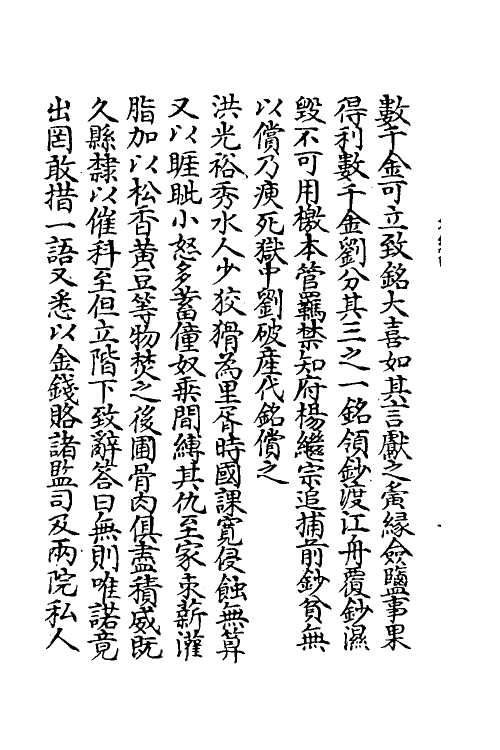 數千金可立致銘大喜如其言獻之夤緣僉鹽事果
得利數千金劉分其三之一銘領鈔渡江舟覆鈔濕
毀不可用檄本管羈禁知府楊繼宗追捕前鈔貧無
以償乃瘐死獄中劉破產代銘償之
洪光裕秀水人少狡猾為里胥時國課寬侵蝕無算
又以睚眦小怒多蓄僮奴乘間縛其仇至家束薪灌
脂加以松香黃豆等物焚之後圃骨肉俱盡積威既
久縣隸以催科至但立階下致辭答曰無則唯諾竟
出罔敢措一語又悉以金錢賂諸監司及兩院私人